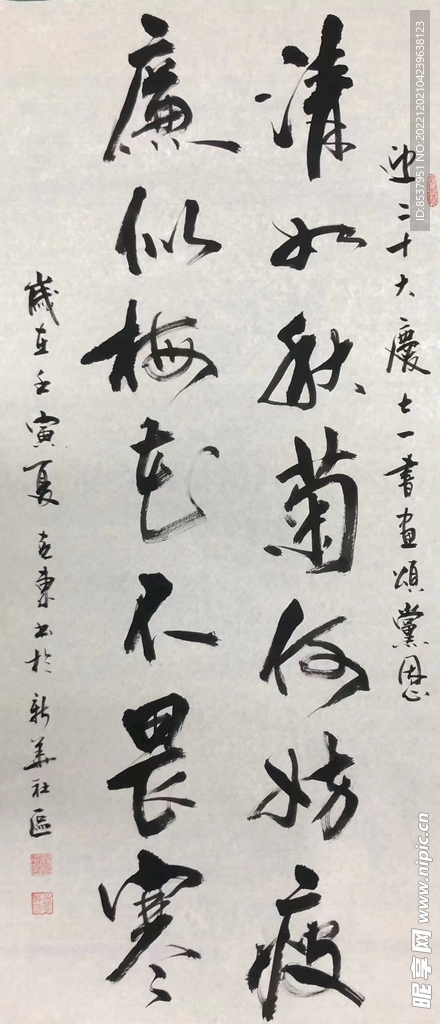 迎二十大慶七一書畫頌黨恩
清如秋菊何妨瘦
廉似梅花不畏寒
歲在壬寅夏東書於新華社區
ID:8537951 NO:20221202104239638123
昵享网 www.nipic.cn